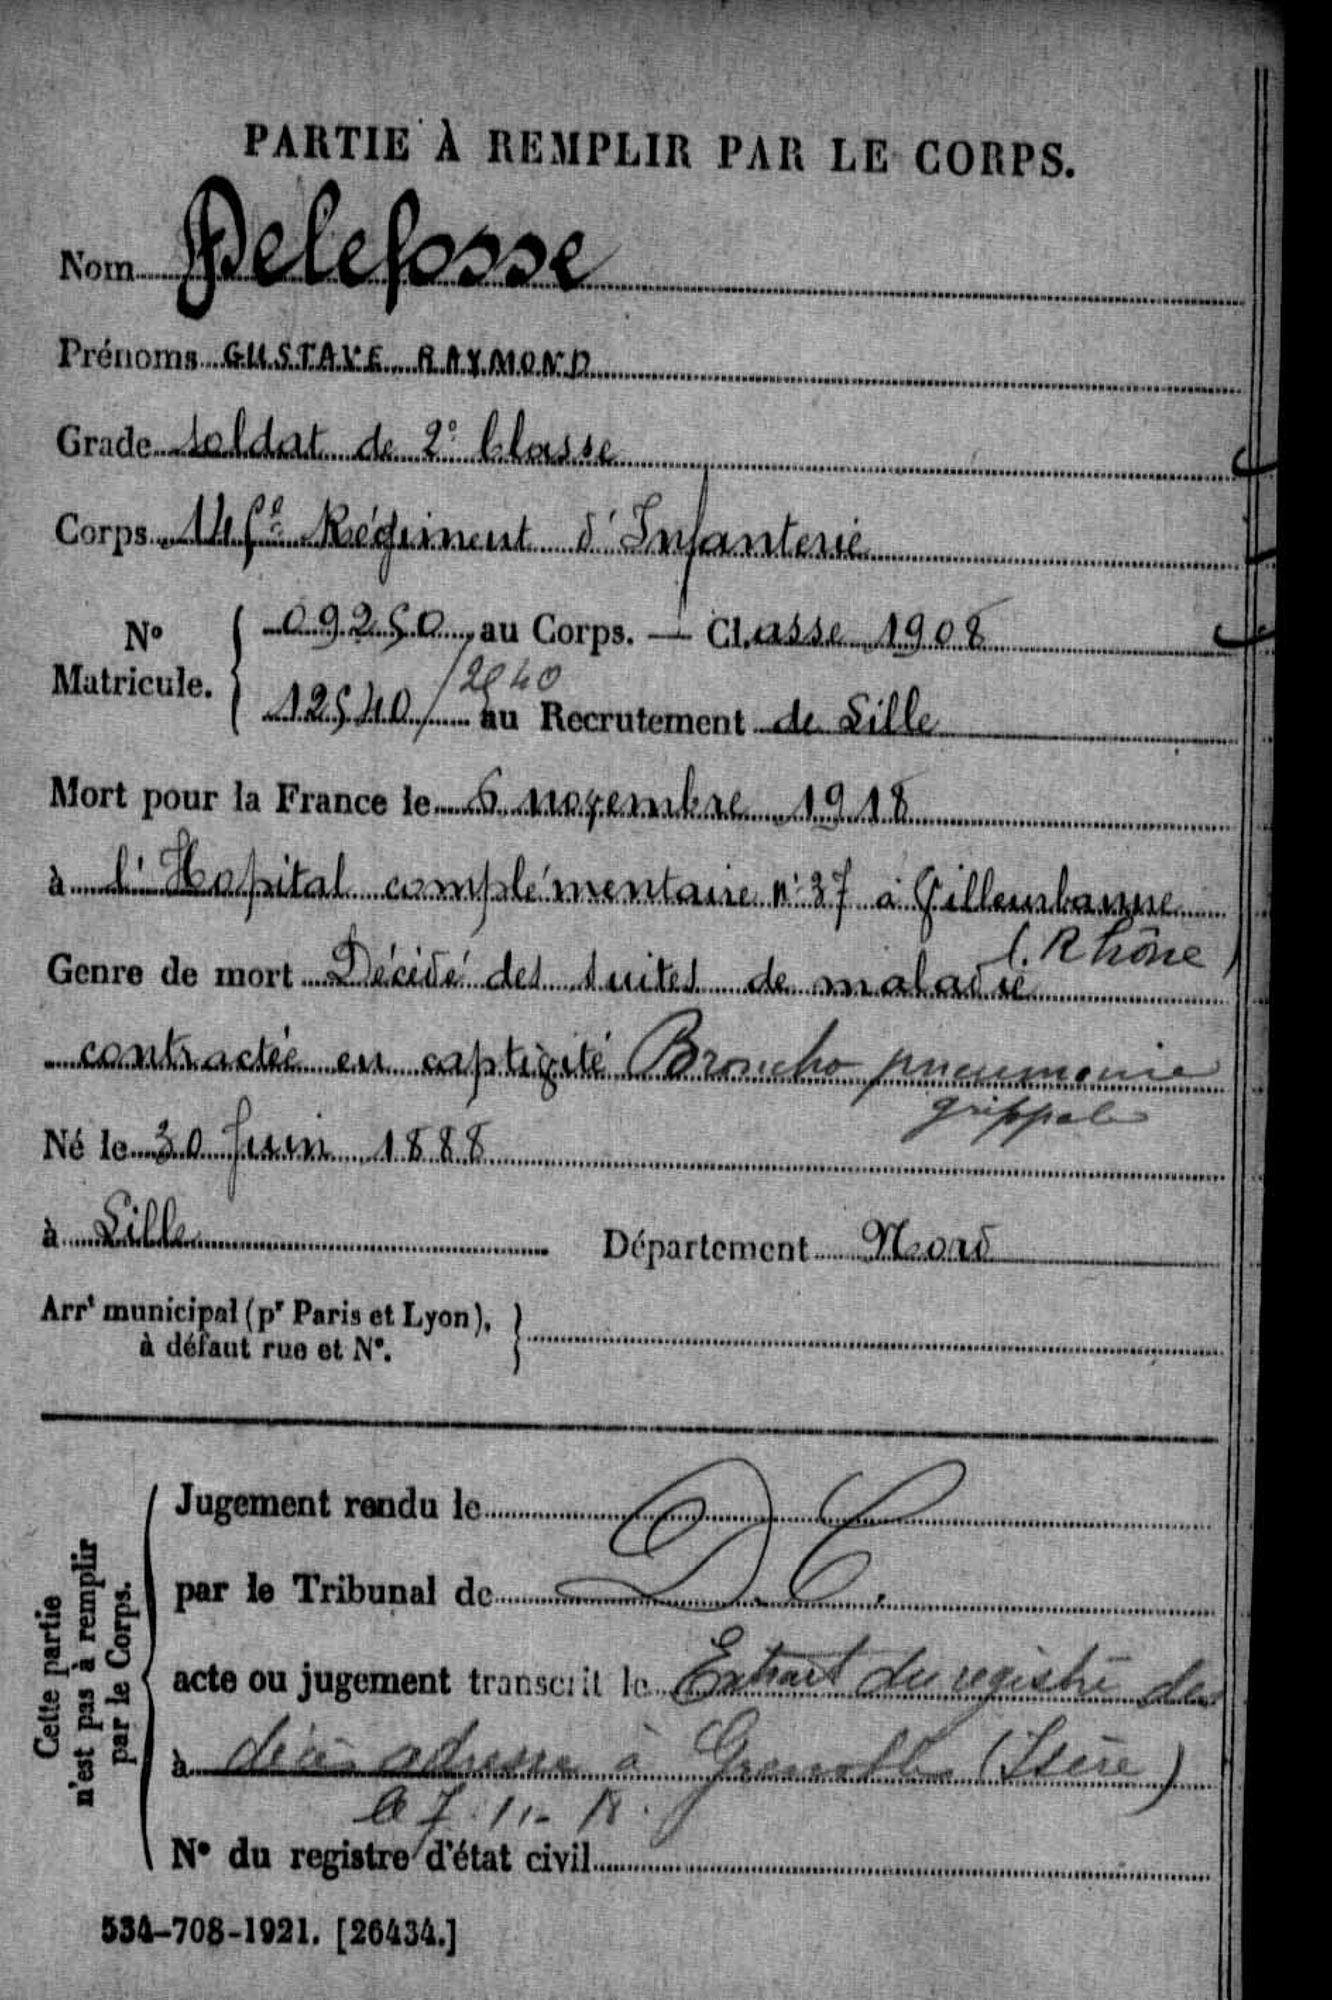 PARTIE À REMPLIR PAR LE CORPS.
Nom Delefosse
Prénoms GUSTAVE RAYMOND
Grade soldat de 2e Classe
Corps Régiment d'Infanterie
No Matricule. 09250 au Corps. — Classe 1908
12540 / 2540 au Recrutement de Lille
Mort pour la France le 6 novembre 1918
à l'Hopital complémentaire n° 37 à Villeurbanne
(Rhône)
Genre de mort Décédé des suites de maladie
contractée en captivité Broncho pneumonie
grippale
Né le 30 Juin 1888
à Lille Département Nord
Arrt municipal (pr Paris et Lyon),
à défaut rue et No.
Cette partie
n'est pas à remplir
par le Corps.
Jugement rendu le
par le Tribunal de D. C.
acte ou jugement transcrit le Extrait du registre des
à décès adressé à Grenoble (Isère)
le 7.11.18.
No du registre d'état civil
534-708-1921. [26434.]